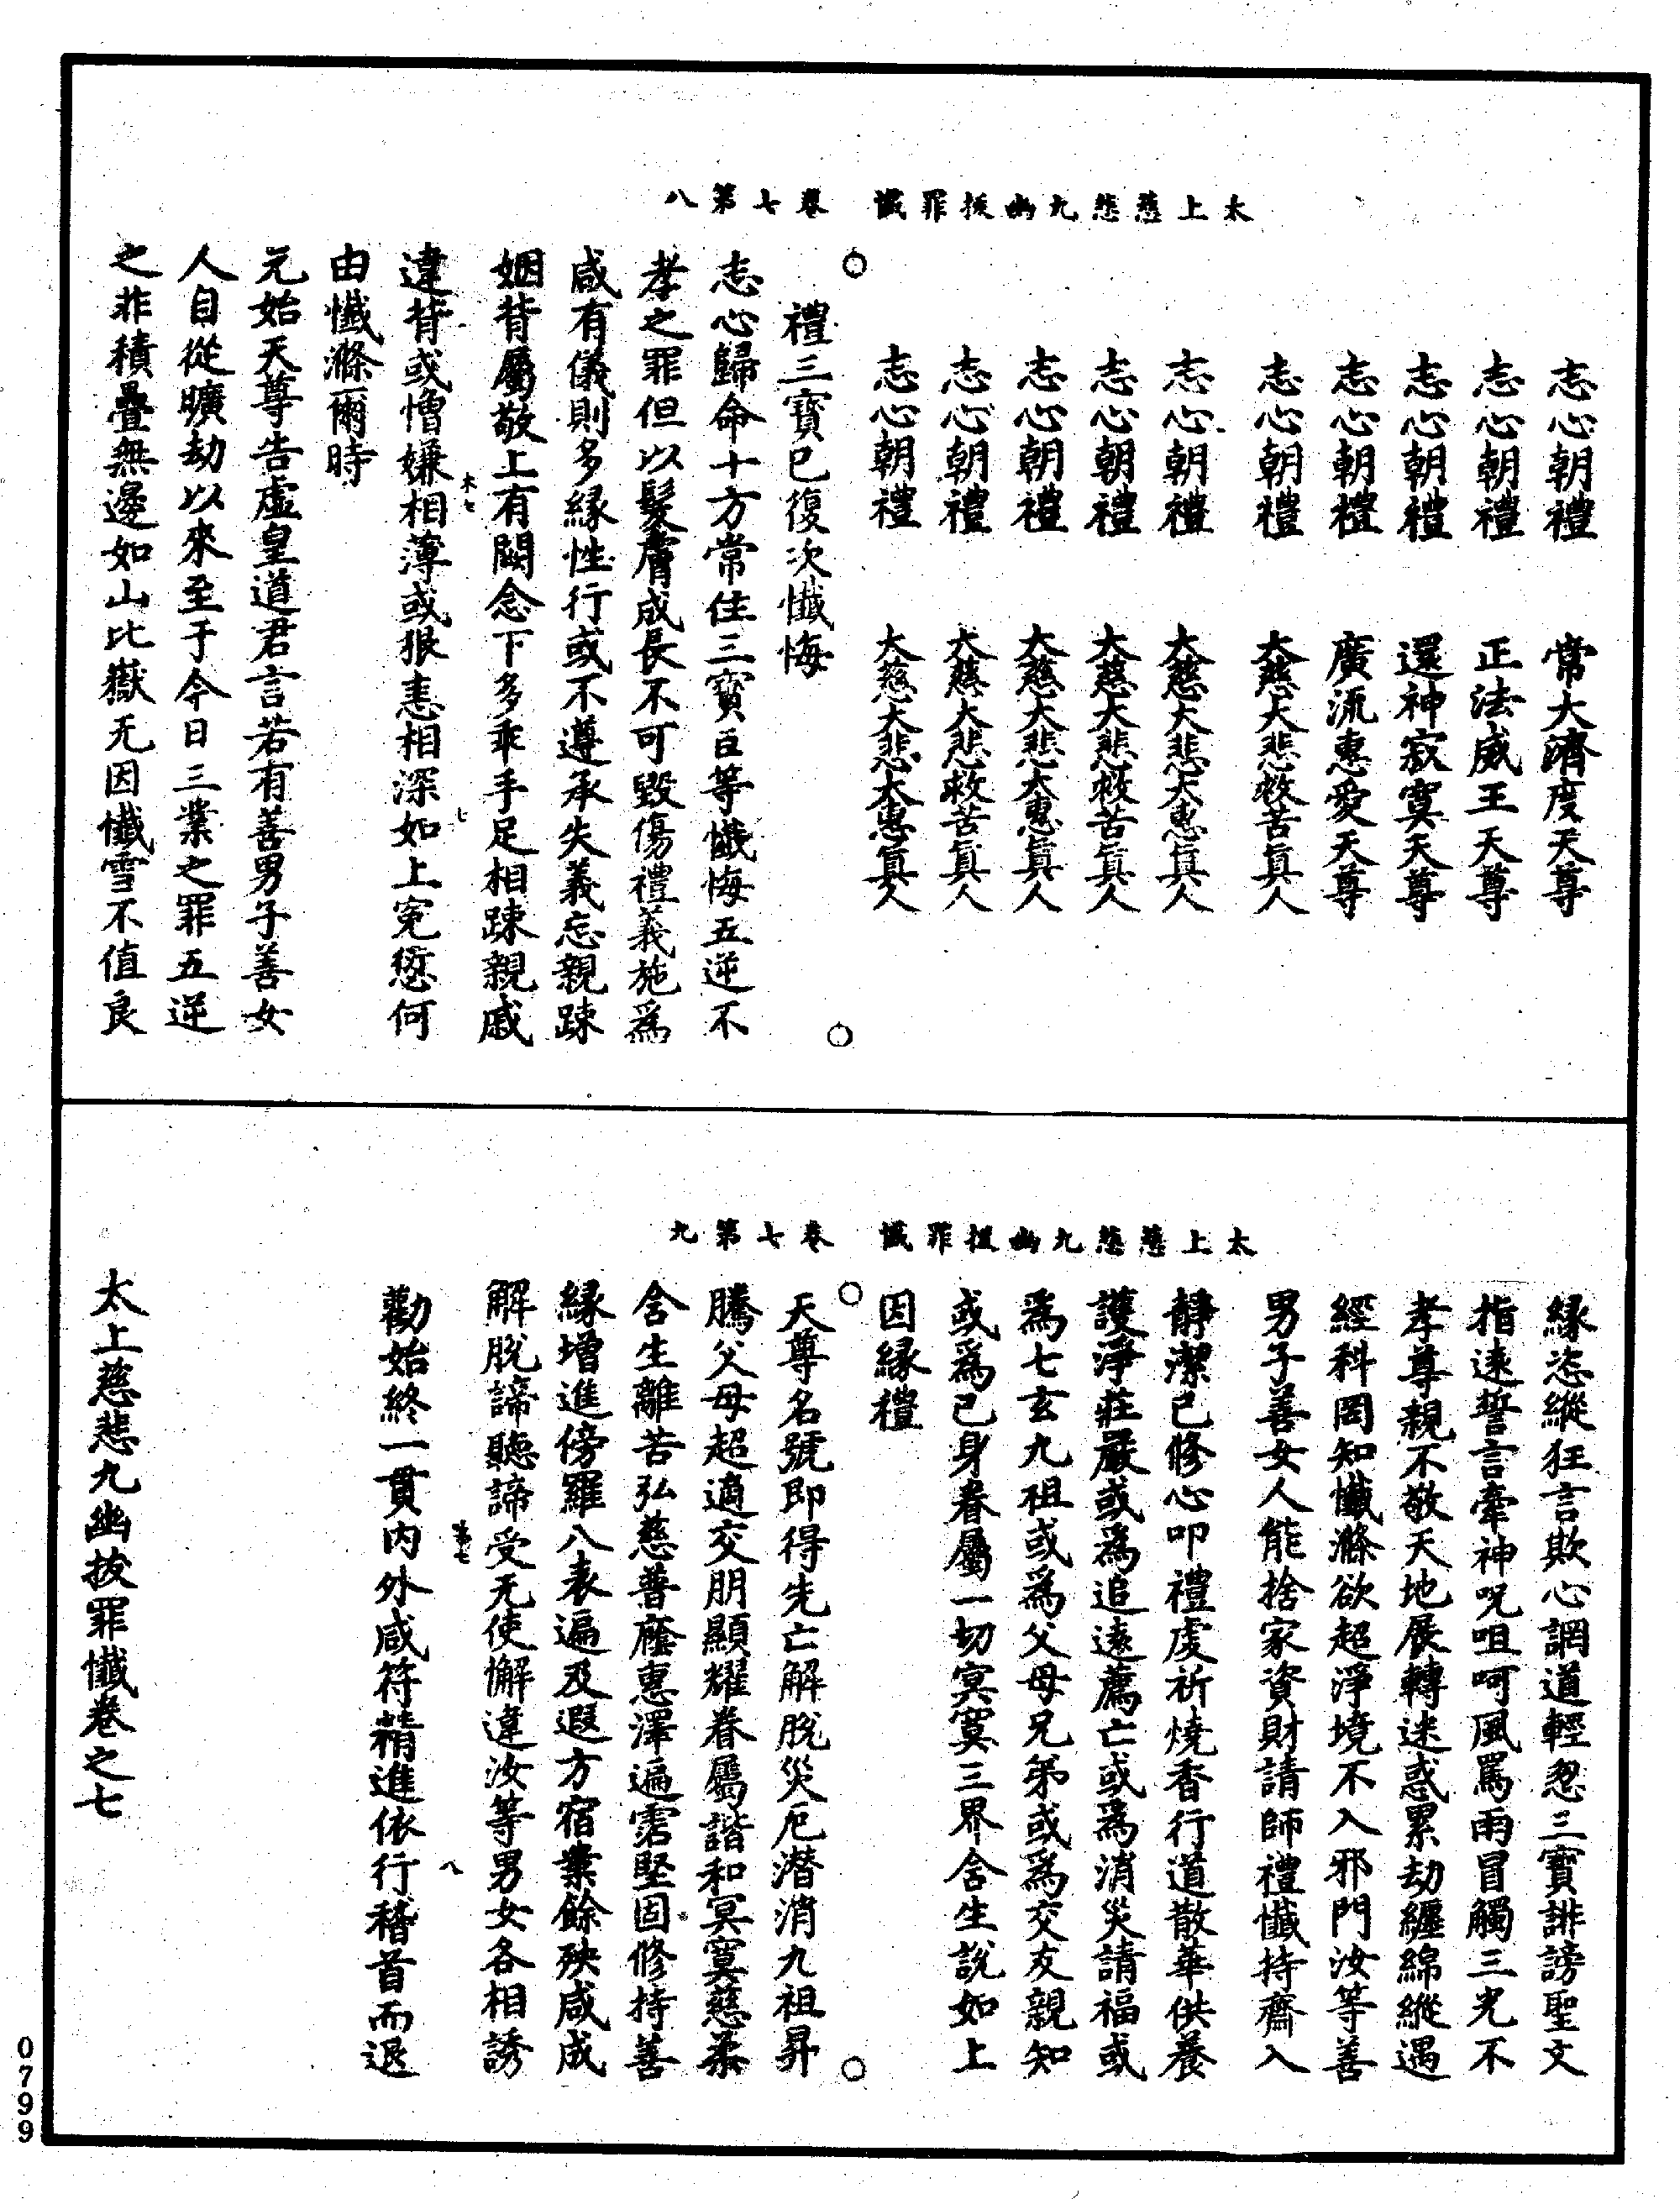 太上慈悲九幽拔罪懺　卷七第八
志心朝禮　常大濟度天尊
志心朝禮　正法威王天尊
志心朝禮　還神寂寞天尊
志心朝禮　廣流惠愛天尊
志心朝禮　大慈大悲救苦眞人
志心朝禮　大慈大悲大惠眞人
志心朝禮　大慈大悲救苦眞人
志心朝禮　大慈大悲大惠眞人
志心朝禮　大慈大悲救苦眞人
志心朝禮　大慈大悲大惠眞人
禮三寳已復次懺悔
志心歸命十方常住三寳臣等懺悔五逆不
孝之罪但以髮膚成長不可毀傷禮義施爲
咸有儀則多緣性行或不遵承失義忘親踈
姻背屬敬上有闕念下多乖手足相踈親戚
違背或憎嫌相薄或狠恚相深如上寃愆何
木七　七
由懺滌爾時
元始天尊告虛皇道君言若有善男子善女
人自從曠劫以來至于今日三業之罪五逆
之非積疊無邊如山比嶽无因懺雪不值良
太上慈悲九幽拔罪懺　卷七第九
緣恣縱狂言欺心誷道輕忽三寳誹謗聖文
指遠誓言牽神呪咀呵風罵雨冒觸三光不
孝尊親不敬天地展轉迷惑累劫纏綿縱遇
經科罔知懺滌欲超淨境不入邪門汝等善
男子善女人能捨家資財請師禮懺持齋入
靜潔已修心叩禮虔祈燒香行道散華供養
護淨莊嚴或爲追遠薦亡或爲消災請福或
爲七玄九祖或爲父母兄弟或爲交友親知
或爲已身眷屬一切冥寞三界含生說如上
因緣禮
天尊名號即得先亡解脫災厄潛消九祖昇
騰父母超適交朋顯耀眷屬諧和冥寞慈柔
含生離苦弘慈普廕惠澤遍霑堅固修持善
緣增進傍羅八表遍及遐方宿業餘殃咸成
解脫諦聽諦受无使懈違汝等男女各相誘
第七　八
勸始終一貫內外咸符精進依行稽首而退
太上慈悲九幽拔罪懺卷之七
0799